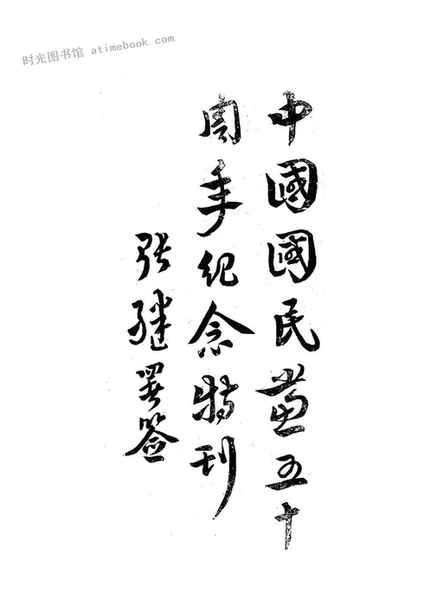 时光图书馆 atimebook.com
中國國民黨五十
周年紀念特刊
张继署签